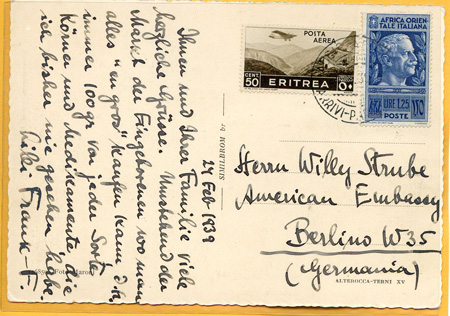 24 Feb 1939
Ihnen und Ihrer Familie viele
herzliche Grüsse. Umstehend der
Markt der Eingeborenen wo man
alles "en gros" kaufen kann d.h.
immer 100gr von jeder Sorte
Körner und Medikamente die
ich bisher nie gesehen habe.
Frank-F.
SIMILBROM by
POSTA
AEREA
CENT.
50
ERITREA
AFRICA ORIEN-
TALE ITALIANA
LIRE 1.25
POSTE
Herrn Willy Strube
American Embassy
Berlino W35
(Germania)
ALTEROCCA-TERNI XV